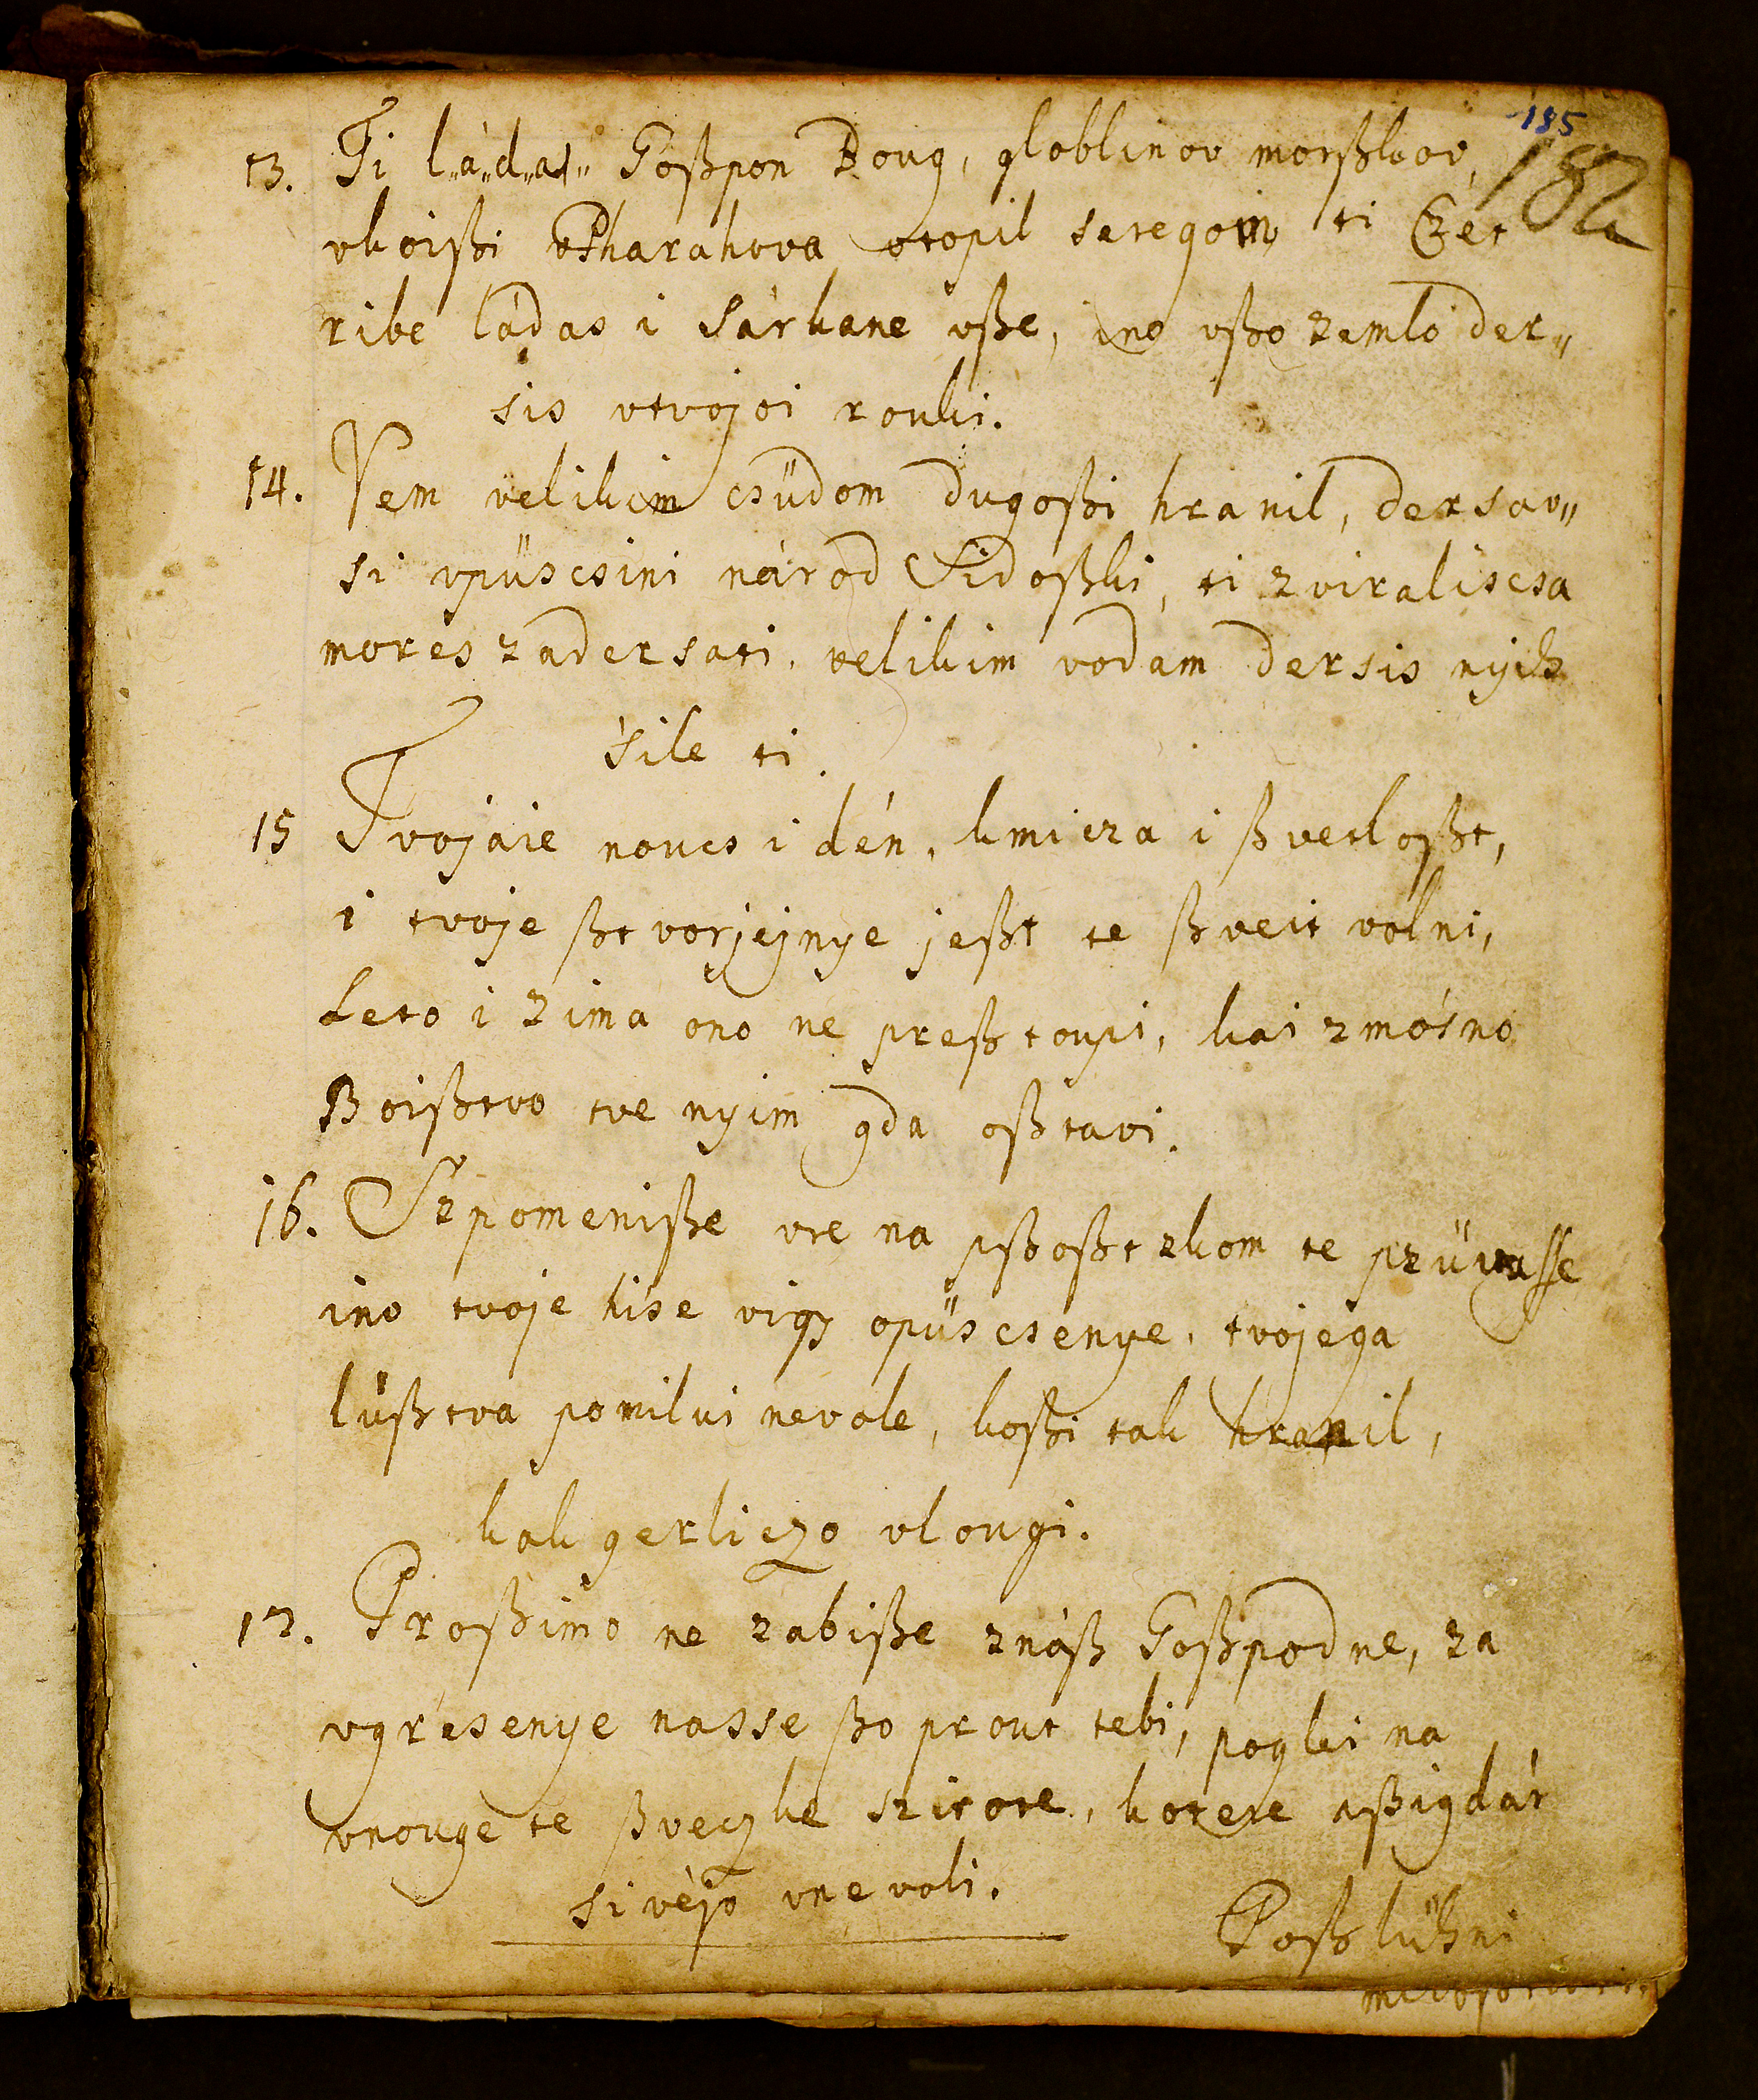 185
182
13. Ti l„á„d„as„ Goßpon Boug, globlinov morßkov,
vkoißi Pharahova vtopil sеregom ti Czét
ribe ládas i sárkane vße, ino vßo zemlo der„
sis vtvojoi rouki.
14. Vem velikim csüdom dugoßi hranil, dersav„
si vpüscsini národ Sidoßki, ti zviraliscsa
mores zadersati, velikim vodam dersis nyih
sile ti.
15 Tvojaie noucs i dén, kmicza i ßvetloßt,
i tvoje ßtvorjejnye jeßt te ßveit volni,
Leto i zima ono ne preßtoupi, kai zmósno
Boißtvo tve nyim gda oßtavi.
16. Szpomeniße vre na pßoßt zkom te
ino tvoje hise vigy opüscsenye, tvojega
lüßtva pomilui nevole, koßi tak hranil,
kak gerliczo vlougi.
17. Proßimo ne zabiße znáß Goßpodne, za
vgresenye nasse ßo prout tebi, pogki na
vnouge te ßveczke szirote, kotere vßigdár
sivéjo vnevoli.
Poßlühni